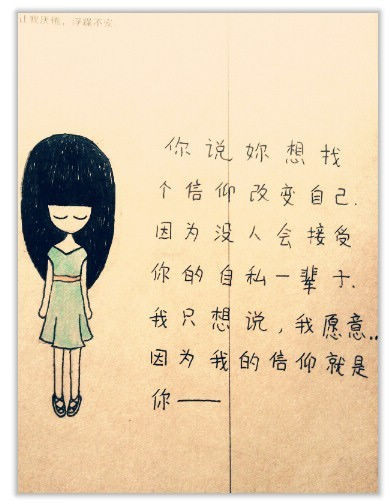 让我厌倦，浮躁不安
你说妳想找
个信仰改变自己.
因为没人会接受
你的自私一辈子.
我只想说，我愿意..
因为我的信仰就是
你——